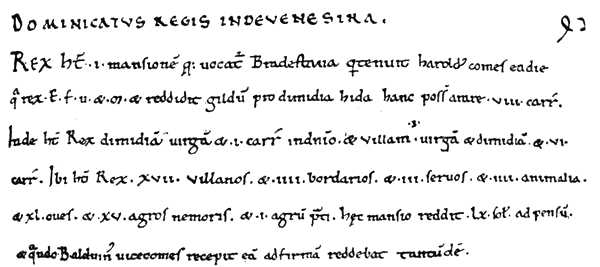 DOMINICATVS REGIS INDEVENESIRA.
REX ht̄ .i. mansionē q̄ uocat̄ Bradestana q̄ tenuit harold̄ comes ea die
q̄ rex .E. f. u. & .m. & reddidit gildū pro dimidia hida hanc poss̄ arare .viii. carr̄.
Inde ht̄ Rex dimidiā uirgā & .i. carr̄ indnīo. & villani .s. uirgā & dimidiā. & .vi.
carr̄. Ibi ht̄ Rex .xvii. villanos. & .iiii. bordarios. & .iii. seruos. & .iiii. animalia.
& xl. oues. & .xv. agros nemoris. & .i. agrū p̄ti. hęc mansio reddit .lx. sol̄. ad pensū.
& qn̄do Balduin̄ uicecomes recepit eā adfirmā reddebat tantundē.